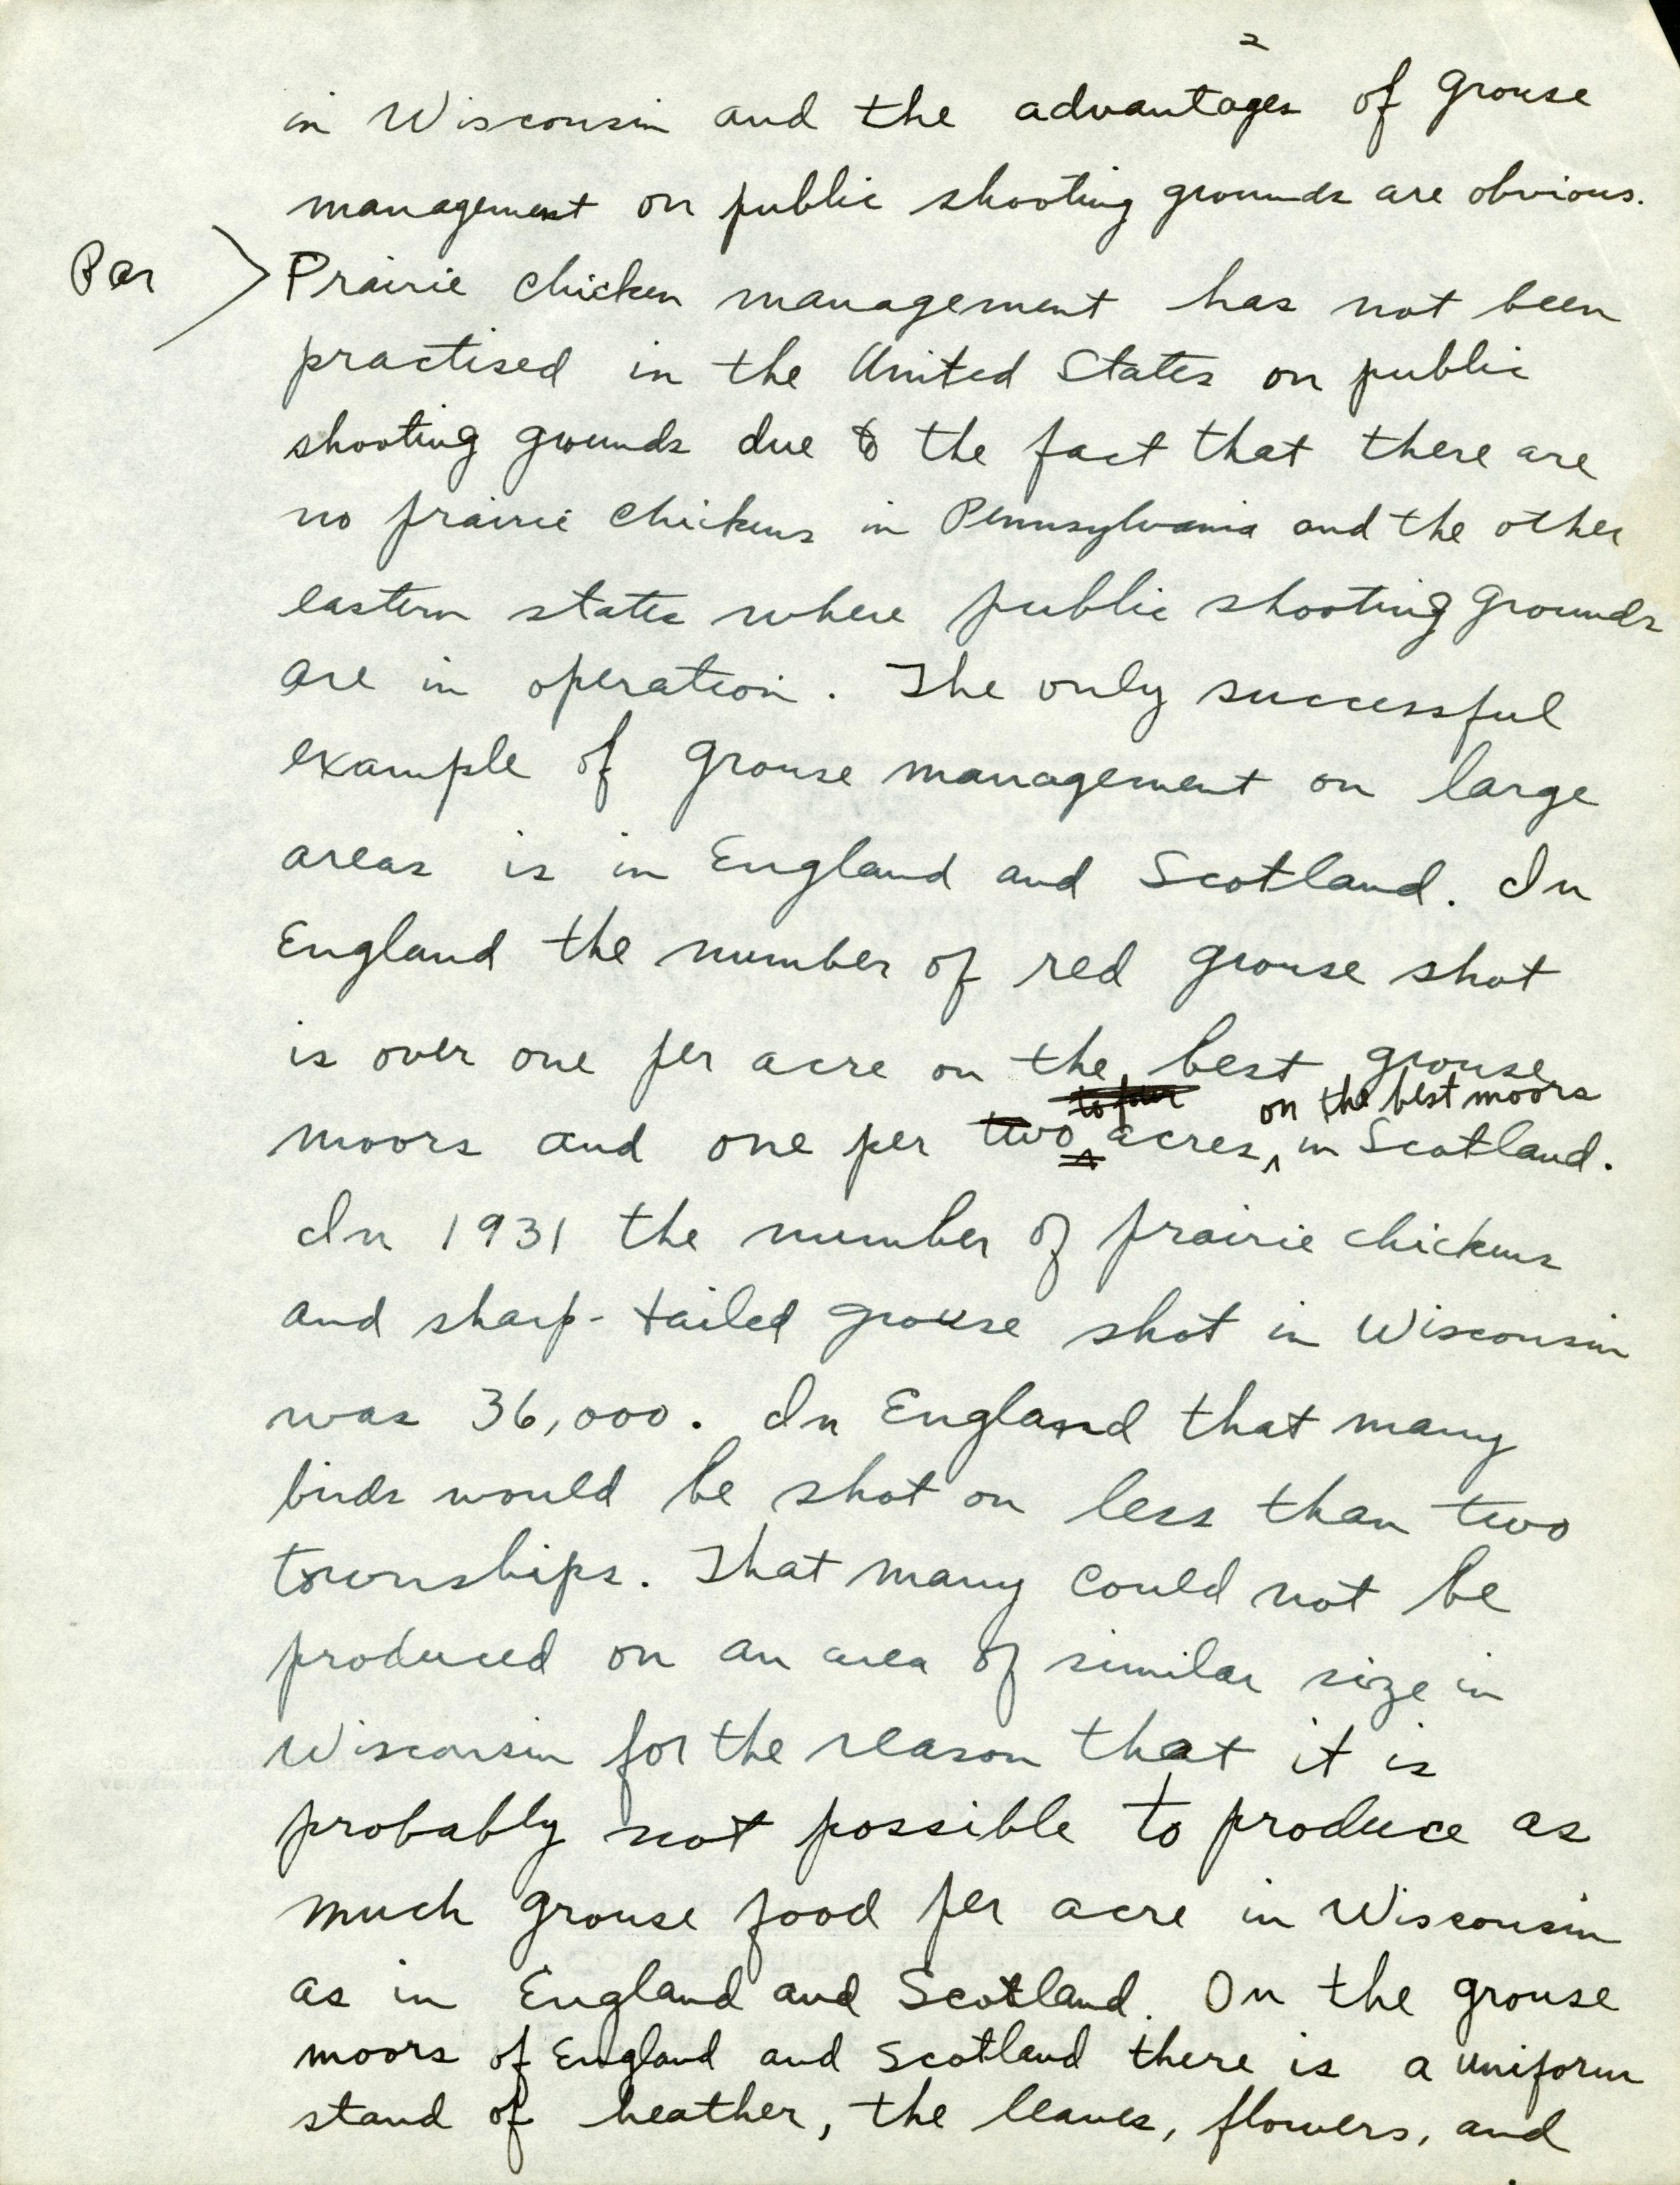 2
in Wisconsin and the advantages of grouse
management on public shooting grounds are obvious.
Par > Prairie chicken management has not been
practised in the United States on public
shooting grounds due to the fact that there are
no prairie chickens in Pennsylvania and the other
eastern states where public shooting grounds
are in operation. The only successful
example of grouse management on large
areas is in England and Scotland. In
England the number of red grouse shot
is over one per acre on the best grouse
to four on the best moors
moors and one per two acres, in Scotland.
In 1931 the number of prairie chickens
and sharp-tailed grouse shot in Wisconsin
was 36,000. In England that many
birds would be shot on less than two
townships. That many could not be
produced on an area of similar size in
Wisconsin for the reason that it is
probably not possible to produce as
much grouse food per acre in Wisconsin
as in England and Scotland. On the grouse
moors of England and Scotland there is a uniform
stand of heather, the leaves, flowers, and